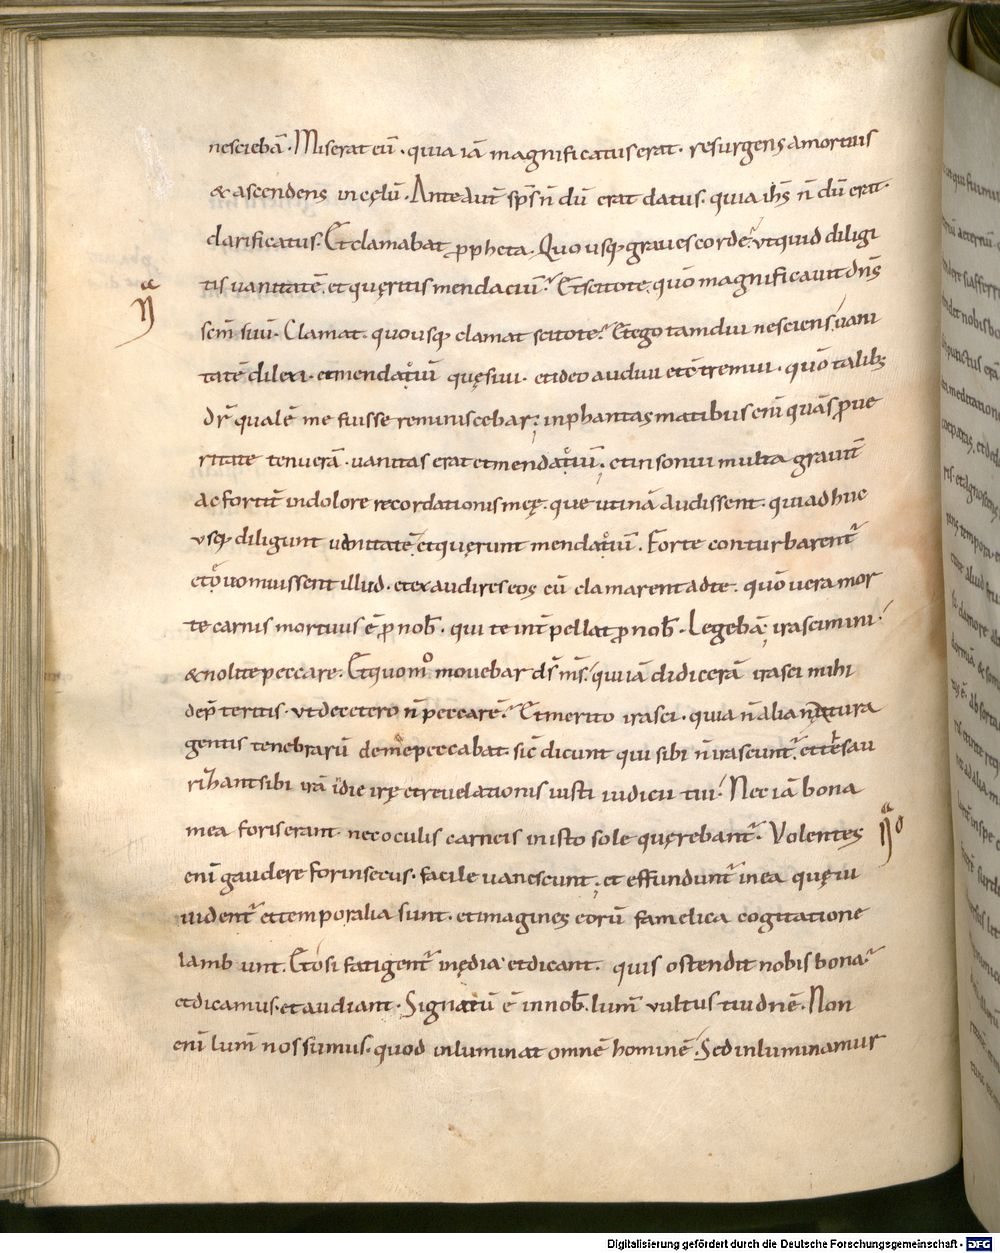 nesciebā. Miserat eū. quia iā magnificatus erat. resurgens amortuis
& ascendens incęlū. Anteaut̄ sp̄s n̄ dū erat datus. quia ih̄s n̄ dū erat
clarificatus. Et clamabat ꝓpheta. Quo usq; graues corde? ut quid diligi
tis uanitatē. et quęritis mendaciū? Et scitote. quō magnificauit dn̄s
sc̄m suū. Clamat. quo usq; clamat scitote? Et ego tamdiu nesciens uani
tatē dilexi. et mendatiū quęsiui. et ideo audiui et c̄tremui. quō talib;
dr̄ qualē me fuisse reminiscebar; inphantasmatibus eni quas ꝓ ue
ritate tenuerā. uanitas erat et mendatiū. et insonui multa grauit̄
ac fortit̄ indolore recordationis meę. que utinā audissent. qui adhuc
usq; diligunt uanitatē et quęrunt mendatiū. Forte conturbarent̄
et euomuissent illud. et exaudires eos cū clamarent adte. quō uera mor
te carnis mortuus ē ꝓ nob̄. qui te int̄pellat ꝓ nob̄. Legebā irascimini
& nolite peccare. Et quom̊ mouebar ds̄ ms̄. qui iā didicerā irasci mihi
dep̄teritis. ut decetero n̄ peccarē? Et merito irasci. quia n̄ alia natura
gentis tenebrarū deme peccabat. sic̄ dicunt qui sibi n̄ irascunt̄. et thesau
rihant sibi irā i die irę et reuelationis iusti iudicii tui. Nec iā bona
mea foris erant. nec oculis carneis in isto sole quęrebant̄. Volentes
eni gaudere forinsecus. facile uanescunt. et effundunt̄ inea quę ui
uident̄ et temporalia sunt. et imagines eorū famelica cogitatione
lamb unt. Et ósi fatigent̄ inędia et dicant. quis ostendit nobis bona?
et dicamus. et audiant. Signatū ē in nob̄. lum̄ uultus tui dn̄e. Non
eni lum̄ nos sumus. quod inluminat omnē hominē. Sed inluminamur
Digitalisierung gefördert durch die Deutsche Forschungsgemeinschaft - DFG